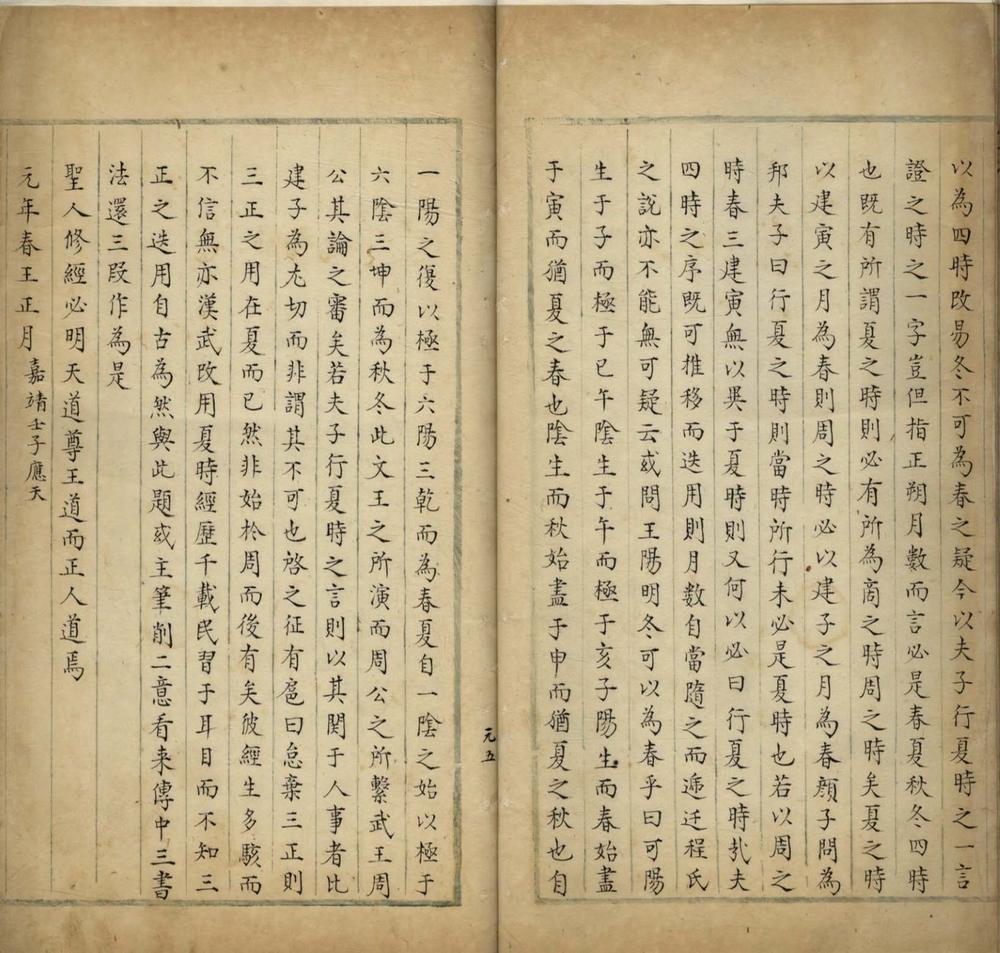 以為四時改易冬不可為春之疑今以夫子行夏時之一言
證之時之一字豈但指正朔月數而言必是春夏秋冬四時
也既有所謂夏之時則必有所為商之時周之時矣夏之時
以建寅之月為春則周之時必以建子之月為春顏子問為
邦夫子曰行夏之時則當時所行未必是夏時也若以周之
時春三建寅無以異于夏時則又何以必曰行夏之時㢤夫
四時之序既可推移而迭用則月數自當隨之而遞迁程氏
之說亦不能無可疑云或問王陽明冬可以為春乎曰可陽
生于子而極于巳午陰生于午而極于亥子陽生而春始盡
于寅而猶夏之春也陰生而秋始盡于申而猶夏之秋也自
元五
一陽之復以極于六陽三乾而為春夏自一陰之始以極于
六陰三坤而為秋冬此文王之所演而周公之所繫武王周
公其論之審矣若夫子行夏時之言則以其関于人事者比
建子為尤切而非謂其不可也啓之征有扈曰怠棄三正則
三正之用在夏而已然非始於周而後有矣彼經生多駭而
不信無亦漢武改用夏時經歷千載民習于耳目而不知三
正之迭用自古為然與此題或主筆削二意看来傳中三書
法還三段作為是
聖人修經必明天道尊王道而正人道焉
元年春王正月 嘉靖壬子應天